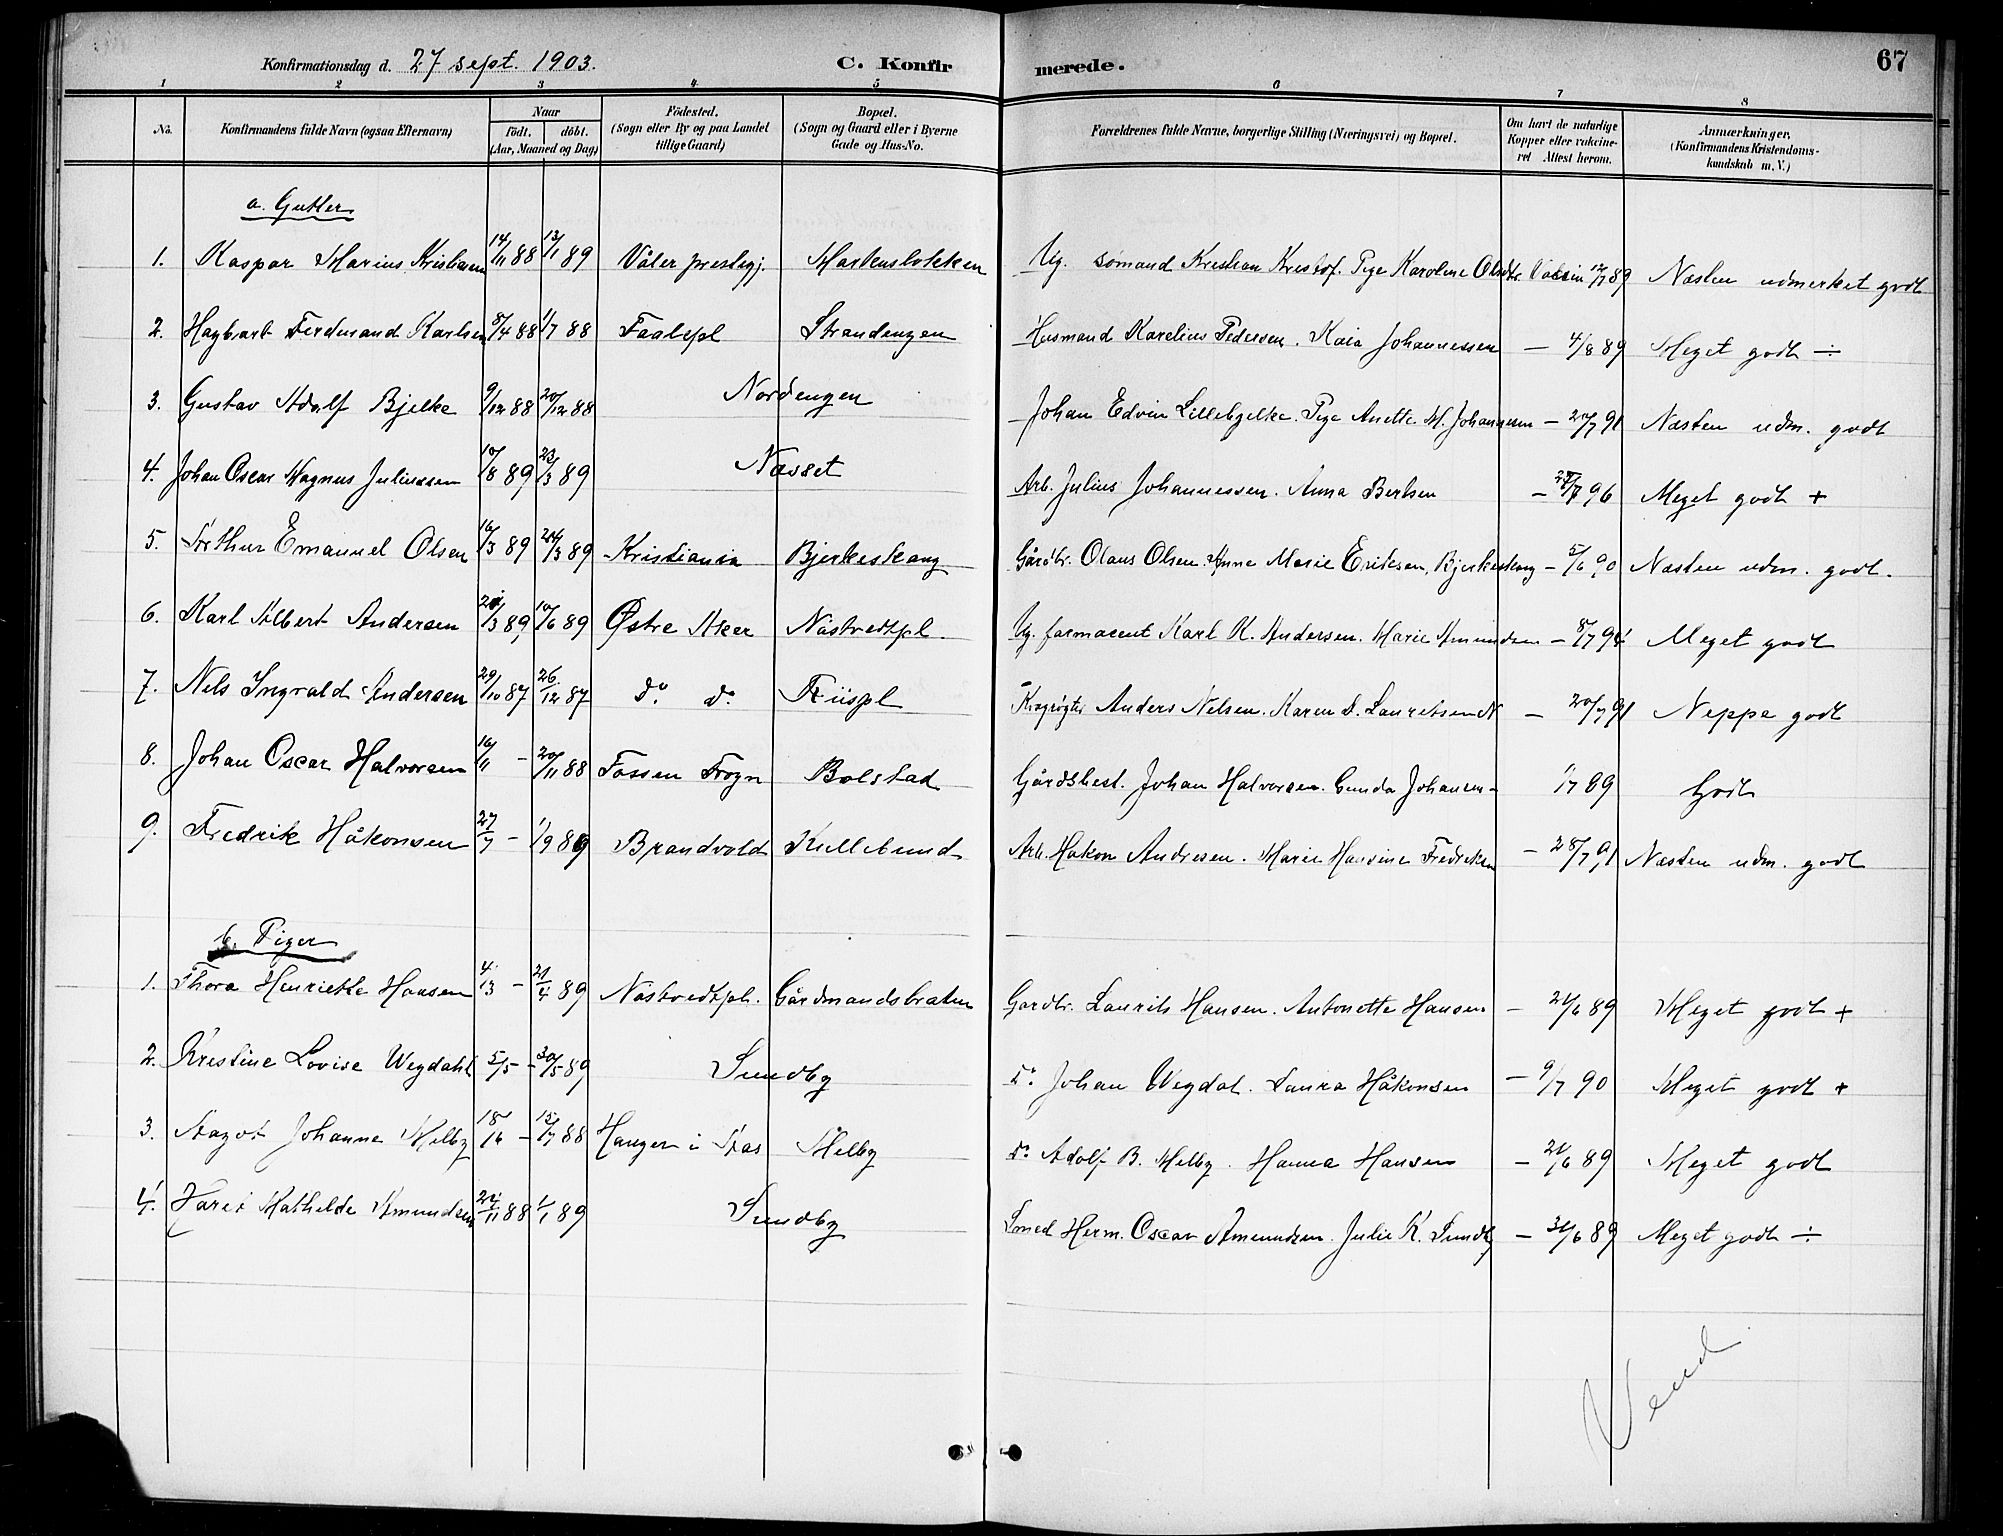 Konfirmationsdag d. 27 sept. 1903. C. Konfirmerede. 67
1 2 3 4 5 6 7 8
No. Konfirmandens fulde Navn (ogsaa Efternavn) Naar født. døbt. (Aar, Maaned og Dag) Födested. (Sogn eller By og paa Landet tillige Gaard) Bopæl. (Sogn og Gaard eller i Byerne Gade og Hus-No. Forældrenes fulde Navne, borgerlige Stilling (Næringsvei) og Bopæl. Om havt de naturlige Kopper eller vakcineret Attest herom. Anmærkninger. (Konfirmandens Kristendomskundskab m. V.)
a. Gutter
1. Kaspar Marius Kristiansen 14/11 88 13/1 89 Våler prestegj. Martensløkken Ug. sømand Kristian Kristof. Pige Karoline Olsdtr. 12/7 89 Næsten udmerket godt
2. Hagbart Ferdinand Karlsen 8/4 88 1/7 88 Faalepl Strandengen Husmand Karelius Pedersen. Kaia Johannessen — 4/8 89 Meget godt ÷
3. Gustav Adolf Bjelke 9/12 88 20/12 88 Nordengen Johan Edvin Lillebjelke. Pige Anette M. Johannesen — 20/7 91 Næsten udm. godt
4. Johan Oscar Magnus Juliussen 10/8 89 23/3 89 Næsset Arb. Julius Johannessen. Anna Berlsen — 28/7 96 Meget godt +
5. Arthur Emanuel Olsen 16/3 89 24/3 89 Kristiania Bjerkeskaug Gårdbr. Olaus Olsen. Anne Marie Eriksen, Bjerkeskaug — 5/6 90 Næsten udm. godt.
6. Karl Albert Andersen 21/3 89 10/6 89 Østre Aker Nåstvedtpl. Ug. farmaceut Karl K. Andersen. Marie Amundsen — 8/7 94 Meget godt
7. Nels Ingvald Andersen 29/10 87 26/12 87 do do Friispl Kvægrøgter Anders Nelsen. Karen D. Lauretsen N — 20/7 91 Neppe godt
8. Johan Oscar Halvorsen 16/11 — 20/11 88 Fossen Frogn Bolstad Gårdsbest. Johan Halvorsen. Gunda Johansen — 1/7 89 Godt
9. Fredrik Håkonsen 27/7 — 1/9 89 Brandvold Kullebund Arb. Håkon Andresen. Marie Hansine Fredriksen — 28/7 91 Næsten udm. godt
b. Piger
1. Thora Henriette Hansen 4/3 — 21/4 89 Nåstvedtpl. Gårdmandsbraten Gardbr. Laurits Hansen. Antonette Hansen — 21/6 89 Meget godt +
2. Kristine Lovise Wegdahl 5/5 — 30/5 89 Sundby Do Johan Wegdal. Laura Håkonsen — 9/7 90 Meget godt +
3. Aagot Johanne Melby 18/6 — 15/7 88 Hauger i Aas Melby Do Adolf B. Melby. Hanna Hansen — 21/6 89 Meget godt
4. Haret Mathilde Amundsen 24/11 88 1/1 89 Sundby Smed Herm. Oscar Amundsen. Julie K. Sundby — 31/6 89 Meget godt ÷
Vend